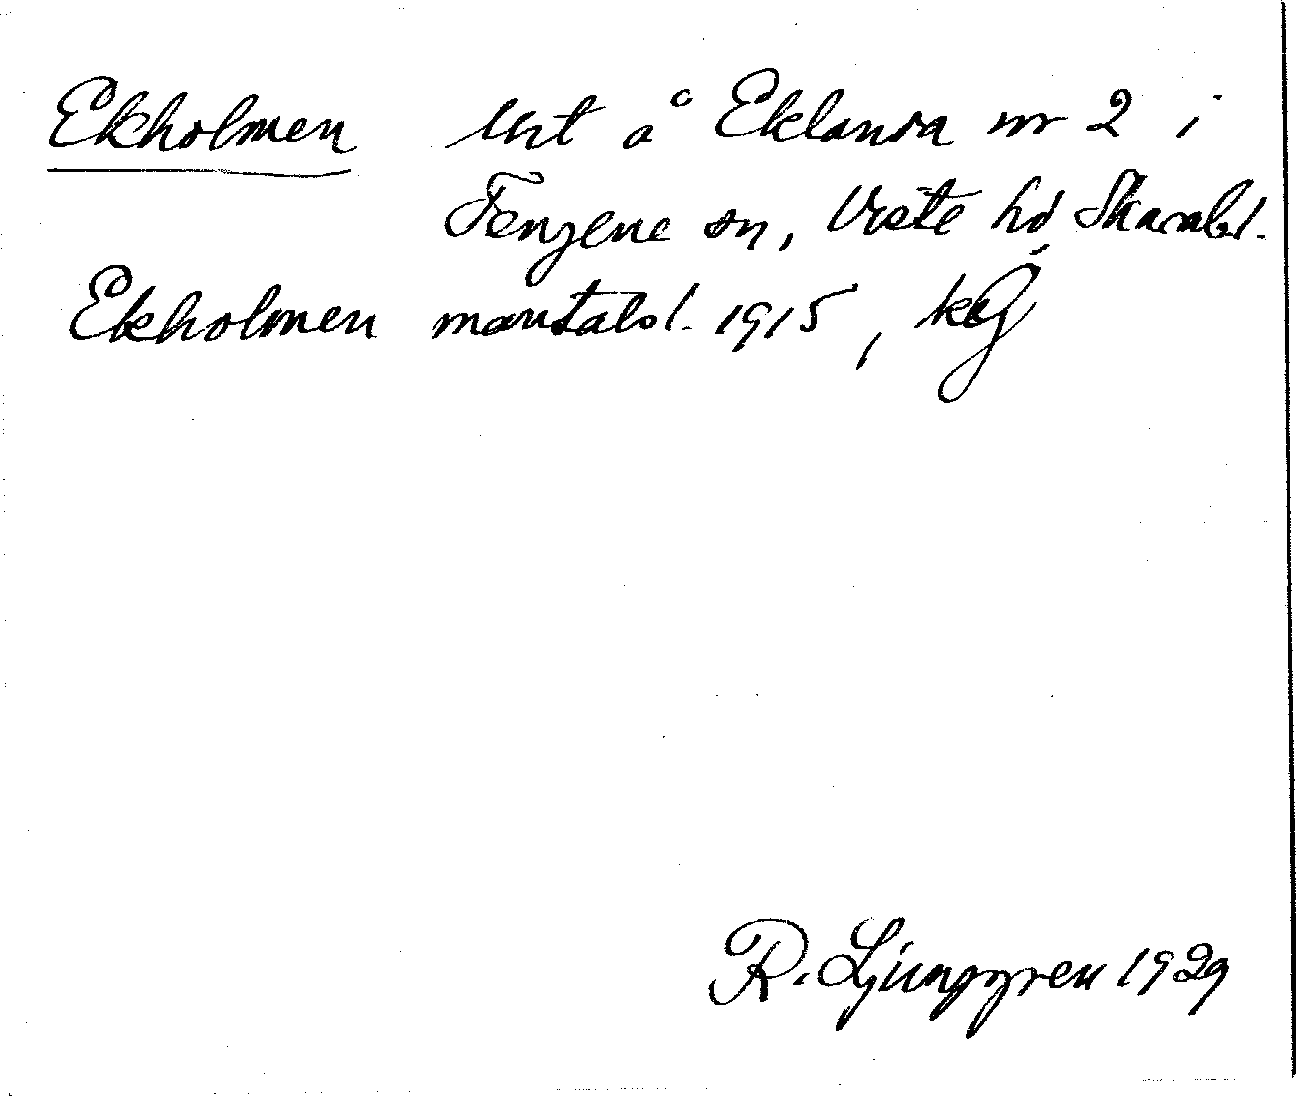 Ekholmen lht å Eklanda nr 2 i
Fengene sn, Viste hd Skarabl.
Ekholmen mantalsl. 1915,
R. Ljunggren 1929